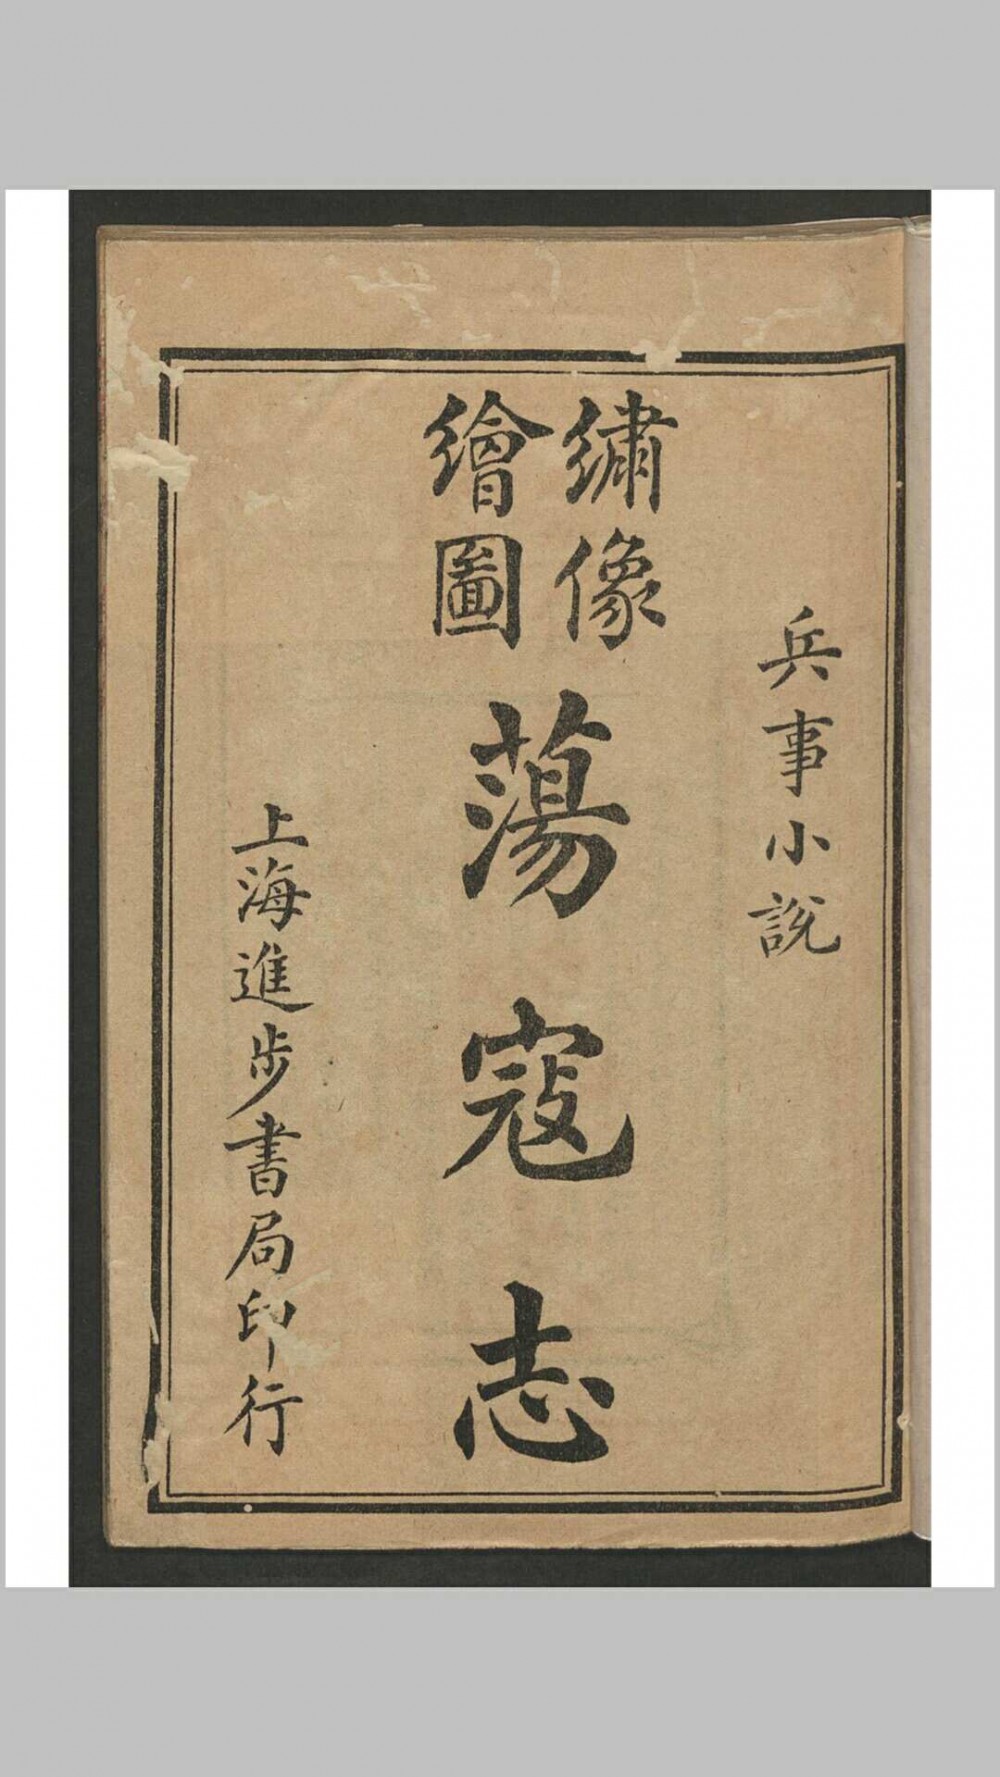 兵事小說
繡像
繪圖
蕩寇志
上海進步書局印行